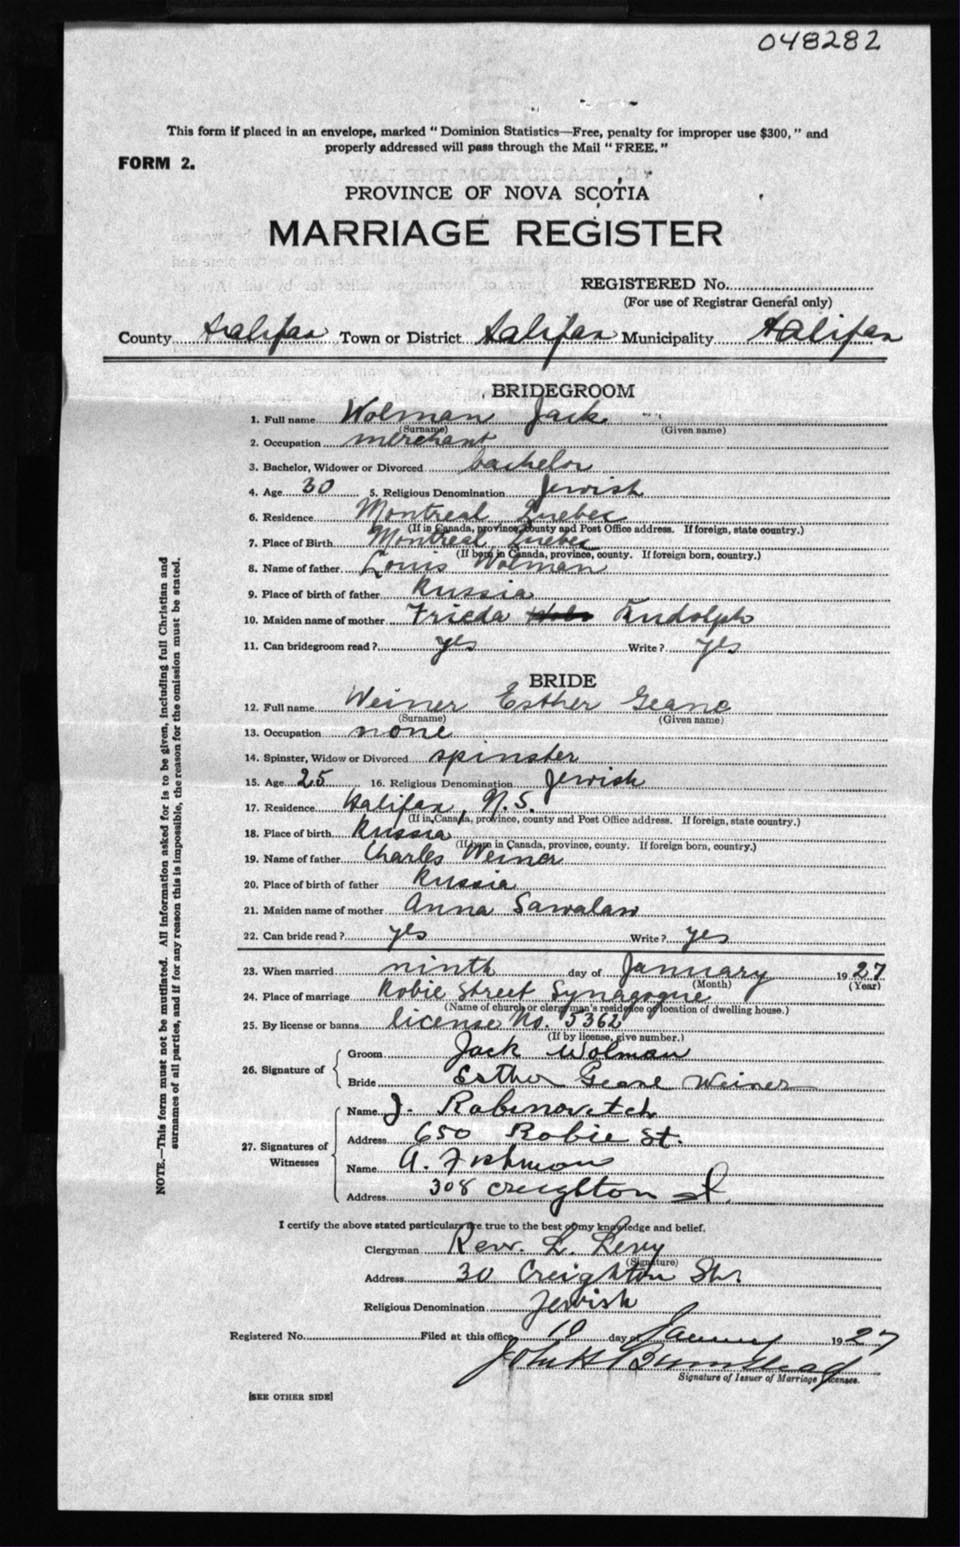 048282
This form if placed in an envelope, marked "Dominion Statistics—Free, penalty for improper use $300," and
properly addressed will pass through the Mail "FREE."
FORM 2.
PROVINCE OF NOVA SCOTIA
MARRIAGE REGISTER
REGISTERED No.
(For use of Registrar General only)
County Halifax Town or District Halifax Municipality Halifax
BRIDEGROOM
1. Full name Wolman Jack
(Surname) (Given name)
2. Occupation merchant
3. Bachelor, Widower or Divorced bachelor
4. Age 30 5. Religious Denomination Jewish
6. Residence Montreal Quebec
(If in Canada, province, county and Post Office address. If foreign, state country.)
7. Place of Birth Montreal Quebec
(If born in Canada, province, county. If foreign born, country.)
8. Name of father Louis Wolman
9. Place of birth of father Russia
10. Maiden name of mother Frieda Rudolph
11. Can bridegroom read? yes Write? yes
BRIDE
12. Full name Weiner Esther Geane
(Surname) (Given name)
13. Occupation none
14. Spinster, Widow or Divorced spinster
15. Age 25 16. Religious Denomination Jewish
17. Residence Halifax, N.S.
(If in Canada, province, county and Post Office address. If foreign, state country.)
18. Place of birth Russia
(If born in Canada, province, county. If foreign born, country.)
19. Name of father Charles Weiner
20. Place of birth of father Russia
21. Maiden name of mother Anna Sawalaw
22. Can bride read? yes Write? yes
23. When married ninth day of January 1927
(Month) (Year)
24. Place of marriage Robie Street Synagogue
(Name of church or clergyman's residence or location of dwelling house.)
25. By license or banns license No. 5362
(If by license, give number.)
26. Signature of
Groom Jack Wolman
Bride Esther Geane Weiner
27. Signatures of Witnesses
Name J. Rabinovitch
Address 650 Robie St.
Name A. Fishman
Address 308 Creighton St.
I certify the above stated particulars are true to the best of my knowledge and belief.
Clergyman Rev. L. Levy
(Signature)
Address 30 Creighton Str
Religious Denomination Jewish
Registered No. Filed at this office 10 day of January 1927
John H
Signature of Issuer of Marriage Licenses.
[SEE OTHER SIDE]
NOTE.—This form must not be mutilated. All information asked for is to be given, including full Christian and
surnames of all parties, and if for any reason this is impossible, the reason for the omission must be stated.